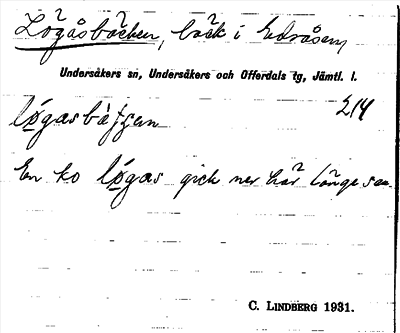 Lögåsbäcken, bäck i Edsåsen,
Undersåkers sn, Undersåkers och Offerdals tg, Jämtl. l.
214
En ko løgas gick ner här länge sen
C. LINDBERG 1931.